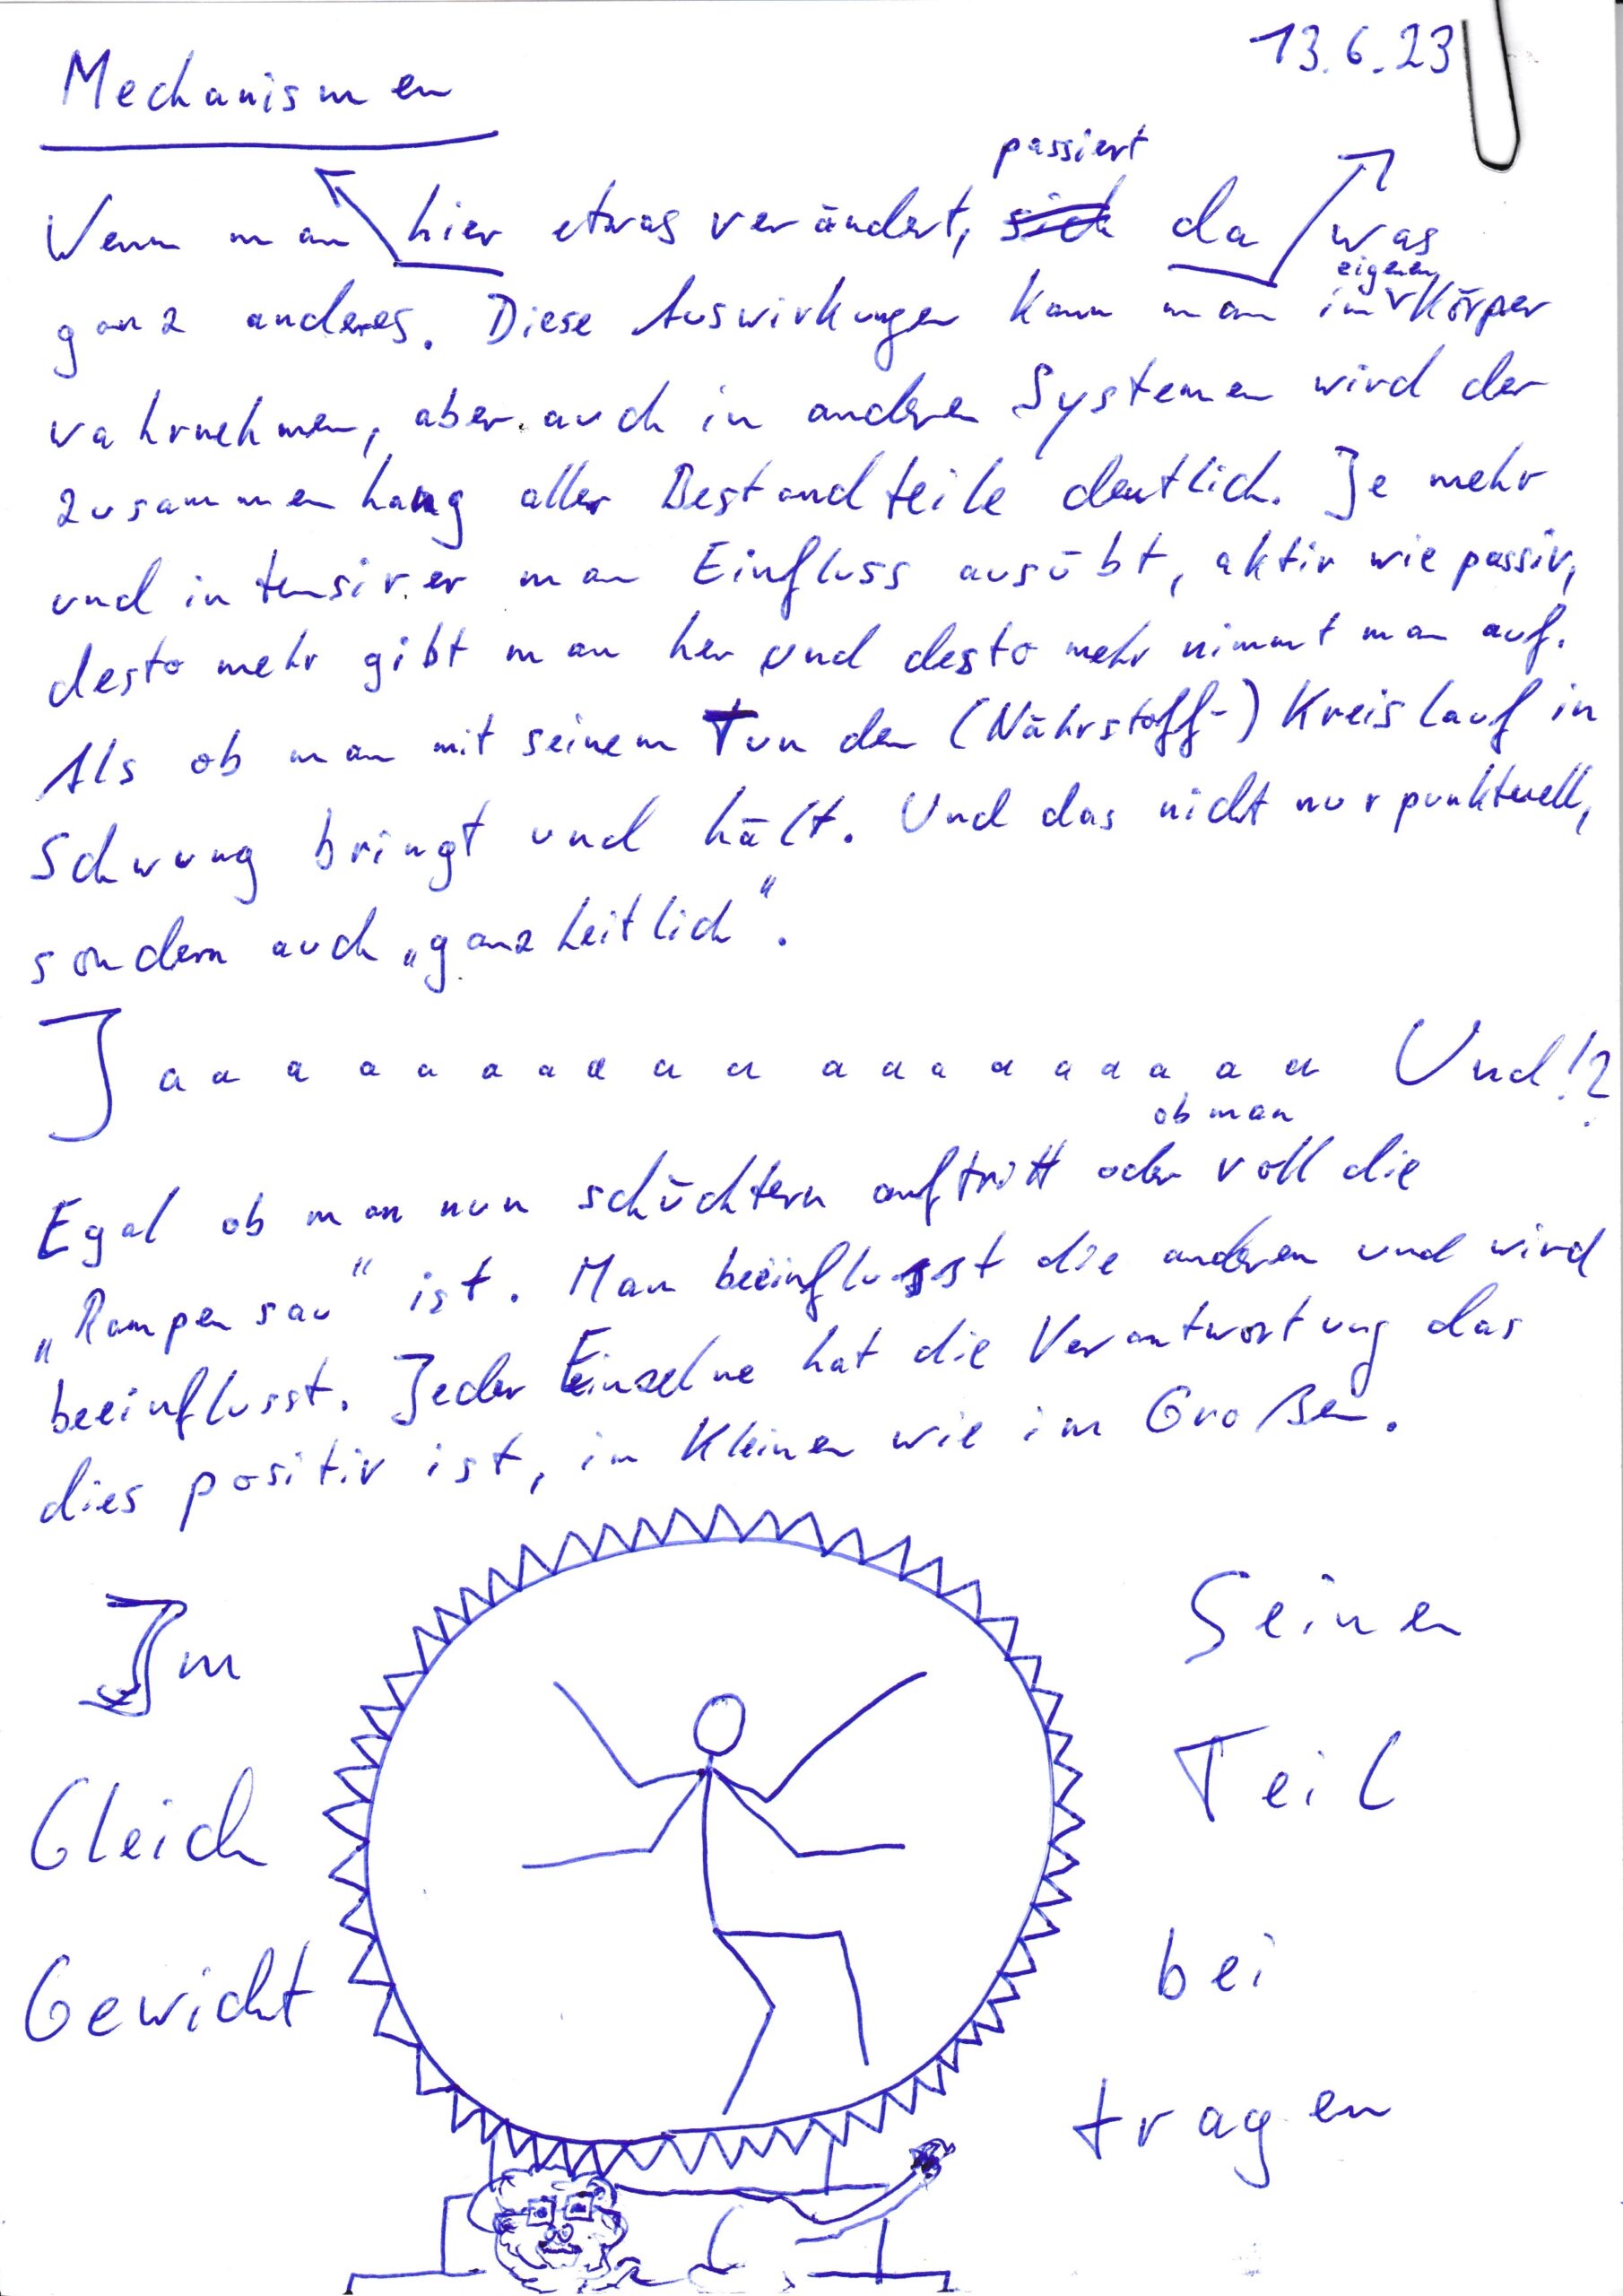 13.6.23
Mechanismen
passiert
Wenn man hier etwas verändert, sich da was
eigenen
ganz anderes. Diese Auswirkungen kann man im Körper
wahrnehmen, aber auch in anderen Systemen wird der
zusammenhang aller Bestandteile deutlich. Je mehr
und intensiver man Einfluss ausübt, aktiv wie passiv,
desto mehr gibt man her und desto mehr nimmt man auf.
Als ob man mit seinem Tun den (Nährstoff-) Kreislauf in
Schwung bringt und hält. Und das nicht nur punktuell,
sondern auch „ganzheitlich".
J a a a a a a a a a a a a a a a a a a a Und!?
ob man
Egal ob man nun schüchtern auftritt oder voll die
„Rampensau" ist. Man beeinflusst die anderen und wird
beeinflusst. Jeder Einzelne hat die Verantwortung das
dies positiv ist, im Kleinen wie im Großen.
Im
Gleich
Gewicht
Seinen
Teil
bei
tragen